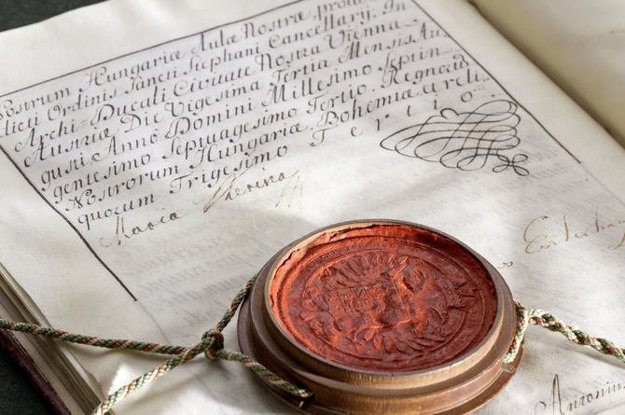 Nostrum Hungariæ Aulæ Nostræ,
dicti Ordinis Sancti Stephani Cancellary, In
Archi-Ducali Civitate Nostra Vienna
Austriæ, Die Vigesima Tertia Mensis Au,
gusti Anno Domini Millesimo Septin,
gentesimo Septuagesimo Tertio. Regnorum
Nostrorum Hungariæ Bohemiæ et reli
quorum Trigesimo Tertio
Maria
Antonius